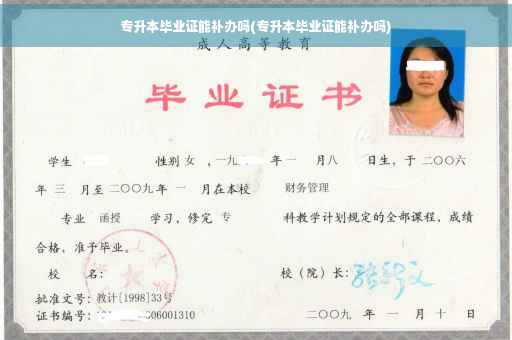 专升本毕业证能补办吗(专升本毕业证能补办吗)
成人高等教育
毕业证书
学生 性别 女 ，一九 年 一 月 八 日生，于 二〇〇六
年 三 月至 二〇〇九 年 一 月在本校 财务管理
专业 函授 学习，修完 专 科教学计划规定的全部课程，成绩
合格，准予毕业。
校 名： 校（院）长：
批准文号：教计[1998]33号
证书编号： 06001310 二〇〇九 年 一 月 十 日